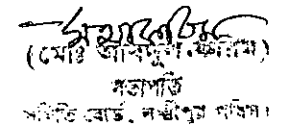 (মোঃ আবদুল করিম)
সভাপতি
সমিতি বোর্ড, লক্ষ্মীপুর পবিস।